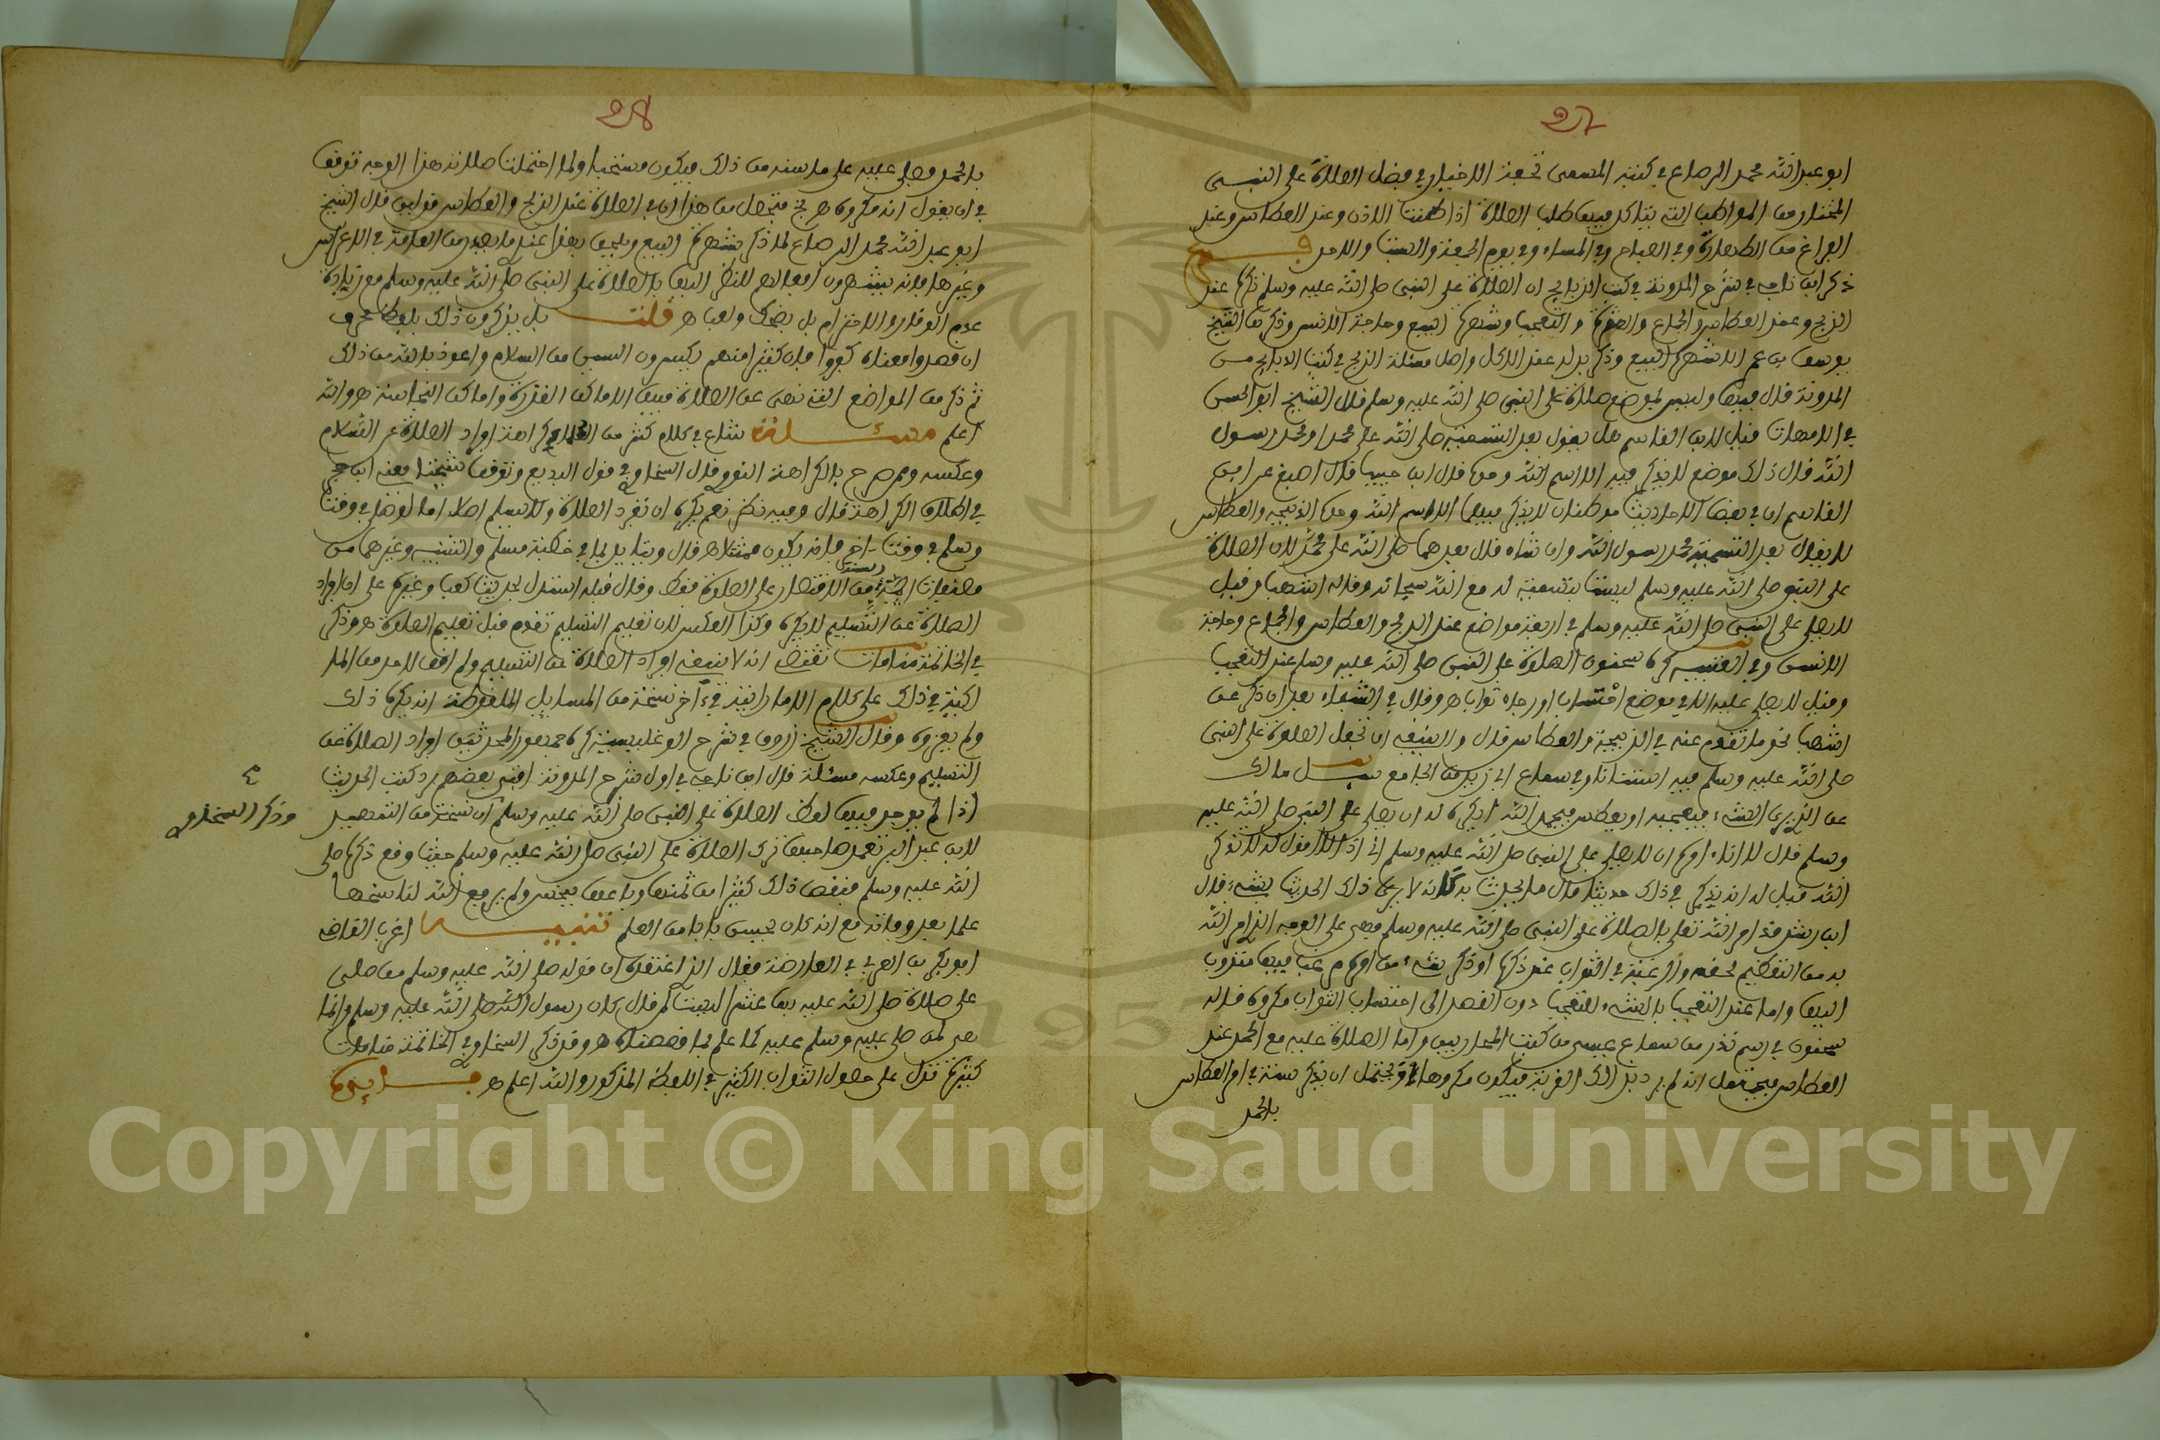 27
ابو عبد الله محمد الرصاع في كتابه المسمى تحفة الاخيار في فضل الصلاة على النبي
المختار من المواطن التي يتاكد فيها طلب الصلاة اذا طنت الاذن وعند العطاس وعند
الفراغ من الطهارة وفي الصباح وفي المساء وفي يوم الجمعة والسبت والاحد فرع
ذكر ابن ناجي في شرح المدونة في كتاب الذبايح ان الصلاة على النبي صلى الله عليه وسلم تكره عند
الذبح وعند العطاس والجماع والعثرة والتعجب وشهرة البيع وحاجة الانسان وذكرها الشيخ
يوسف بن عمر الا شهرة البيع وذكر بدله عند الاكل واصل مسئلة الذبح في كتاب الذبايح من
المدونة قال فيها وليس بموضع صلاة على النبي صلى الله عليه وسلم قال الشيخ ابو الحسن
في الامهات قيل لابن القاسم هل يقول بعد التسمية صلى الله على محمد او محمد رسول
الله قال ذلك موضع لا يذكر فيه الا اسم الله وحده قال ابن حبيب قال اصبغ عن ابن
القاسم ان في بعض الاحاديث موطنان لا يذكر فيهما الا اسم الله وحده الذبيحة والعطاس
لا يقول بعد التسمية محمد رسول الله وان شاء قال بعدهما صلى الله على محمد لان الصلاة
على النبي صلى الله عليه وسلم ليست بتسمية له مع الله سبحانه وقاله اشهب وقيل
لا يصلى على النبي صلى الله عليه وسلم في اربعة مواضع عند الذبح والعطاس والجماع وحاجة
الانسان وفي التنبيه كره سحنون الصلاة على النبي صلى الله عليه وسلم عند التعجب
وقيل لا يصلى عليه الا في موضع احتساب او رجاء ثواب هـ وقال في الشفاء بعد ان ذكر عن
اشهب نحو ما تقدم عنه في الذبيحة والعطاس قال ولا ينبغي ان تجعل الصلاة على النبي
صلى الله عليه وسلم فيه استنانا وفي سماع ابي زيد من الجامع سيل مالك
عن الذي يرى الشيء فيعجبه او يعطس فيحمد الله ايكره له ان يصلي على النبي صلى الله عليه
وسلم قال لا انا اءمره ان لا يصلي على النبي صلى الله عليه وسلم اني اذا اقول له لا تذكر
الله قيل له انه يذكر في ذلك حديثا قال ما لحديث بذلك لا يرى ذلك الحديث بشيء قال
ابن رشد قد امر الله تعالى بالصلاة على النبي صلى الله عليه وسلم فهي على الوجه الذي امر الله
به من التعظيم لحقه والرغبة في الثواب عند ذكره او ذكر شيء من امره مرغب فيها مندوب
اليها واما عند التعجب بالشيء للتعجب دون القصد الى احتساب الثواب مكروه قاله
سحنون في رسم نذر من سماع عيسى من كتاب المحاربين واما الصلاة عليه مع الحمد عند
العطاس فيحتمل انه لم يرد بذلك القربة فيكون مكروها ويحتمل ان يذكر سنة في امر العطاس
بالحمد
28
بالحمد ويصلي عليه على ما سنه من ذلك فيكون مستحبا ولما احتملت صلاته هذا الوجه توقف
في ان يقول انه مكروه هـ فيتحصل من هذا ان في الصلاة عند الذبح والعطاس قولين قال الشيخ
ابو عبد الله محمد الرصاع لما ذكر شهرة البيع ويلحق بهذا عند ما يصدر من العامة في الاعراس
وغيرها فانه يشهرون افعالهم للنظر اليها بالصلاة على النبي صلى الله عليه وسلم مع زيادة
عدم الوقار والاحترام بل بضحك ولعب هـ قلت بل يذكرون ذلك بلفظ محرف
ان قصدوا معناه كفروا فان كثيرا منهم يكسرون السين من السلام واعوذ بالله من ذلك
ثم ذكر من المواضع التي نهى عن الصلاة فيها الاماكن القذرة واماكن النجاسة هـ والله
اعلم مسئلة شاع في كلام كثير من العلماء كراهة افراد الصلاة عن السلام
وعكسه وممن صرح بالكراهة النووي قال السخاوي في القول البديع وتوقف شيخنا يعني ابن حجر
في اطلاق الكراهة قال وفيه نظر نعم يكره ان تفرد الصلاة ولا يسلم اصلا اما لو صلى في وقت
وسلم في وقت اخر فانه يكون ممتثلا هـ قال ويتايد بما في خطبة مسلم والتنبيه وغيرهما من
مصنفات ايمة السنة من الاقتصار على الصلاة فقط وقال قبله استدل بحديث كعب وغيره على ان افراد
الصلاة عن التسليم لا يكره وكذا العكس لان تعليم التسليم تقدم قبل تعليم الصلاة هـ وذكر
في الخاتمة منامات تقتضي انه لا ينبغي افراد الصلاة عن التسليم ولم اقف لاحد من الما
لكية في ذلك على كلام الا ما رايته في ءاخر نسخة من المسايل الملقوطة انه يكره ذلك
ولم يعزه وقال الشيخ زروق في شرح الوغليسية كره جمهور المحدثين افراد الصلاة عن
التسليم وعكسه مسئلة قال ابن ناجي في اول شرح المدونة افتى بعضهم برد كتب الحديث
اذا لم يوجد فيها لفظ الصلاة على النبي صلى الله عليه وسلم ان نسخة من التمهيد
لابن عبد البر تعمد صاحبها ترك الصلاة على النبي صلى الله عليه وسلم حيث وقع ذكره صلى
الله عليه وسلم فنقص ذلك كثيرا من ثمنها وباعها ببخس ولم يرفع الله لناسخها
علما بعد وفاته مع انه كان يحسن بابا من العلم تنبيه اغرب القاضي
ابو بكر بن العربي في العارضة فقال الذي اعتقده ان قوله صلى الله عليه وسلم من صلى
علي صلاة صلى الله عليه بها عشرا ليست لمن قال كان رسول الله صلى الله عليه وسلم وانما
هي لمن صلى عليه وسلم عليه كما علم بما قصصناه هـ وقد ذكر السخاوي في الخاتمة منامات
كثيرة تدل على حصول الثواب الكثير في اللفظ المذكور والله اعلم هـ فايدة
وذكر السخاوي